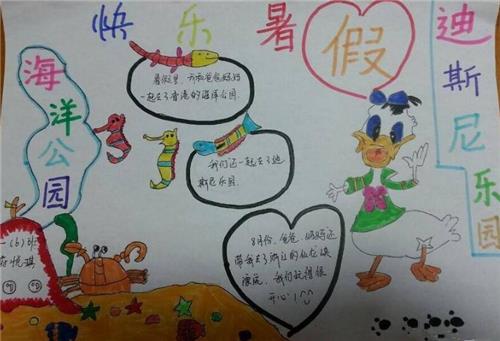 快乐暑假
迪斯尼乐园
海洋公园
暑假里,我和爸爸妈妈
一起去了香港的海洋公园.
我们还一起去了迪
斯尼乐园.
8月份,爸爸、妈妈还
带我去了浙江的仙龙峡
漂流.我们玩得很
开心!
一(6)班